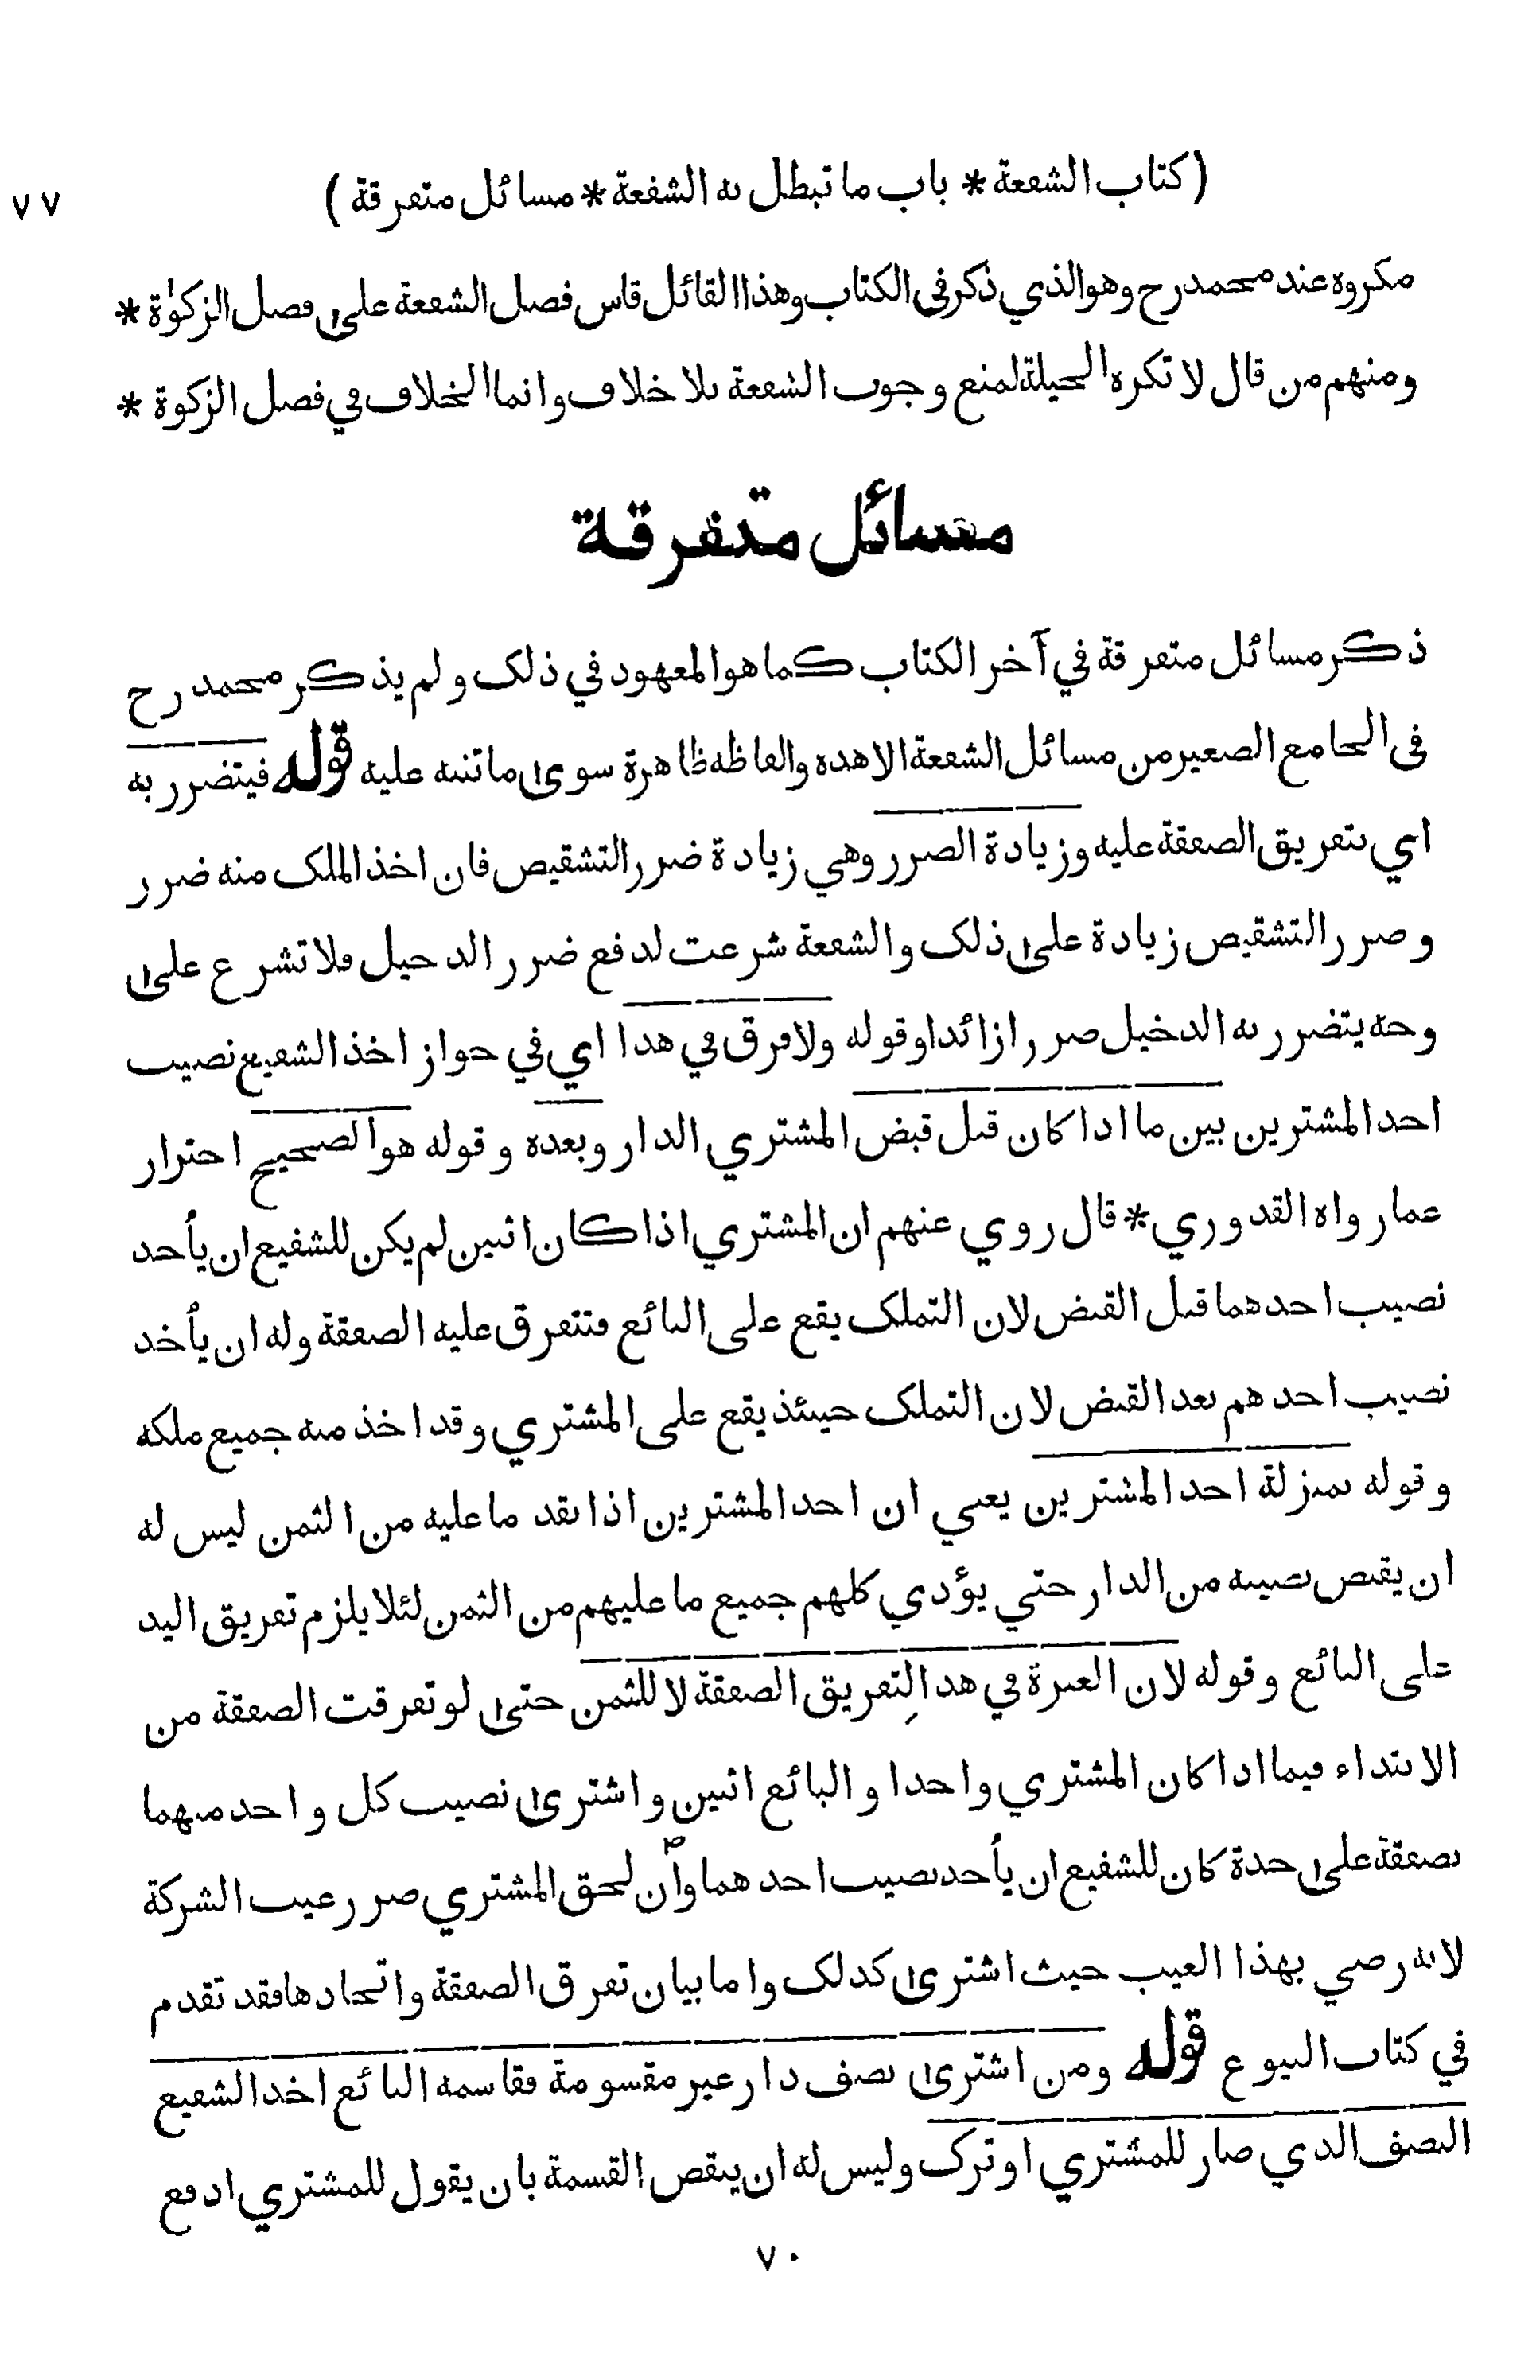 ( كتاب الشفعة * باب ما تبطل به الشفعة * مسائل متفرقة )
٧٧
مكروه عند محمد رح وهو الذي ذكر فى الكتاب وهذا القائل قاس فصل الشفعة على فصل الزكوٰة *
ومنهم من قال لا تكره الحيلة لمنع وجوب الشفعة بلا خلاف وانما الخلاف في فصل الزكوة *
مسائل متفرقة
ذكر مسائل متفرقة في آخر الكتاب كما هو المعهود في ذلك ولم يذكر محمد رح
فى الجامع الصغير من مسائل الشفعة الا هذه والفاظه ظاهرة سوى ما ننبه عليه قوله فيتضرر به
اي بتفريق الصفقة عليه وزيادة الضرر وهي زيادة ضرر التشقيص فان اخذ الملك منه ضرر
وضرر التشقيص زيادة على ذلك والشفعة شرعت لدفع ضرر الدخيل فلا تشرع على
وجه يتضرر به الدخيل ضررا زائدا وقوله ولا فرق في هذا اي في جواز اخذ الشفيع نصيب
احد المشترين بين ما اذا كان قبل قبض المشتري الدار وبعده وقوله هو الصحيح احتراز
عما رواه القدوري * قال روي عنهم ان المشتري اذا كان اثنين لم يكن للشفيع ان يأخذ
نصيب احدهما قبل القبض لان التملك يقع على البائع فتتفرق عليه الصفقة وله ان يأخذ
نصيب احدهم بعد القبض لان التملك حينئذ يقع على المشتري وقد اخذ منه جميع ملكه
وقوله بمنزلة احد المشترين يعني ان احد المشترين اذا نقد ما عليه من الثمن ليس له
ان يقبض نصيبه من الدار حتي يؤدي كلهم جميع ما عليهم من الثمن لئلا يلزم تفريق اليد
على البائع وقوله لان العبرة في هذا لِتفريق الصفقة لا للثمن حتى لو تفرقت الصفقة من
الابتداء فيما اذا كان المشتري واحدا و البائع اثنين واشترى نصيب كل واحد منهما
بصفقة على حدة كان للشفيع ان يأخذ نصيب احدهما وان لحق المشتري ضرر عيب الشركة
لانه رضي بهذا العيب حيث اشترى كذلك واما بيان تفرق الصفقة واتحادها فقد تقدم
في كتاب البيوع قوله ومن اشترى نصف دار غير مقسومة فقاسمه البائع اخذ الشفيع
النصف الذي صار للمشتري او ترك وليس له ان ينقض القسمة بان يقول للمشتري ادفع
٧٠